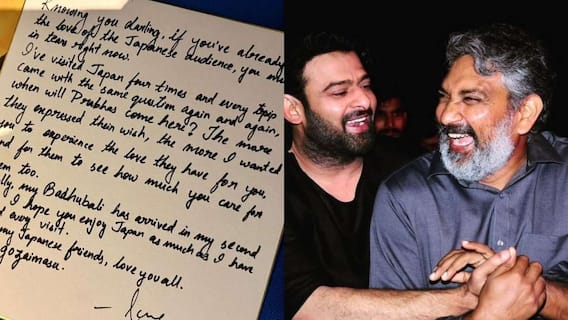 Knowing you darling, if you've already
the love of the Japanese audience, you
in tears right now.
I've visited Japan four times and every trip
came with the same question again and again,
when will Prabhas come here? The more
they expressed their wish, the more I wanted
to experience the love they have for you,
for them to see how much you care for
too.
my Badhubali has arrived in my second
I hope you enjoy Japan as much as I have
every visit.
my Japanese friends, love you all.